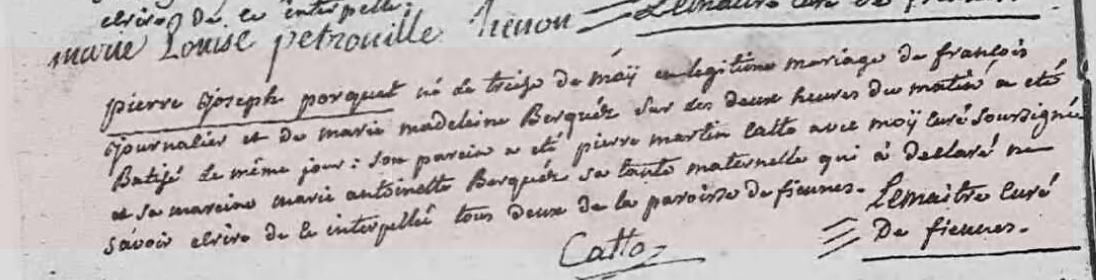 écrire de ce interpellé. Lemaitre curé de fiennes.
marie Louise petronille henon
pierre joseph porquet né le treize de may en legitime mariage de françois
journalier et de marie madeleine Berquéz sur les deux heures du matin a eté
Batisé le même jour : son parein a eté pierre martin Catto avec moÿ curé soussigné
et sa mareine marie antoinette Berquéz sa tante maternelle qui à declaré ne
savoir ecrire de ce interpellée tous deux de la paroisse de fiennes. Lemaitre curé
Catto De fiennes.